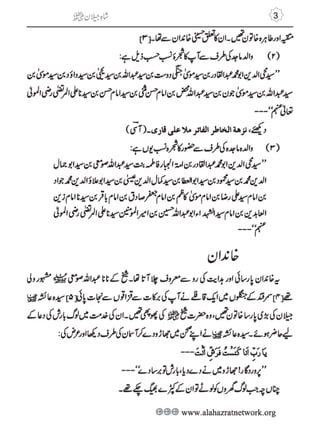 3 شاہِ جیلان ﷺ
متقیہ اور طاہرہ خاتون تھیں۔ ان کا تعلق حسینی خاندان سے تھا۔ [۳]
(۲) والد ماجد کی طرف سے آپ کا شجرۂ نسب حسب ذیل ہے:
’’سید محی الدین ابو محمد عبد القادر بن سید موسیٰ جنگی دوست بن سید عبد اللہ بن سید یحییٰ بن سید داؤد بن سید موسیٰ بن
سید عبد اللہ بن سید موسیٰ جون بن سید عبد اللہ محض بن سید امام حسن مثنیٰ بن سید امام حسن بن سیدنا علی المرتضیٰ رضی المولیٰ
تعالیٰ عنہم‘‘---
دیکھئے، نزهة الخاطر الفاتر ملا علی قاری۔ (آسی)
(۳) والدہ ماجدہ کی طرف سے حضور کا شجرہ نسب یوں ہے:
’’سید محی الدین ابو محمد عبد القادر بن امۃ الجبار فاطمہ بنت سید عبد اللہ صومعی بن سید ابو جمال
الدین محمد بن سید محمود بن سید ابو العطا بن سید کمال الدین عیسیٰ بن سید ابو علاؤ الدین محمد جواد
بن امام سید علی رضا بن امام موسیٰ کاظم بن امام جعفر صادق بن امام باقر بن سید امام زین
العابدین بن امام سید الشہداء ابو عبد اللہ حسین بن امیر المومنین سیدنا علی المرتضیٰ رضی المولیٰ
عنہم‘‘---
خاندان
یہ خاندان پارسائی اور ہدایت کی رو سے معروف چلا آتا تھا۔ شیخ کے نانا عبد اللہ صومعی مشہور ولی
تھے [۴] سمرقند کے جنگلوں میں ایک قافلے نے آپ کی برکات سے قزاقوں سے نجات پائی [۵] سیدہ عائشہ
جیلان کی بڑی پارسا خاتون تھیں، وہ حضرت شیخ کی پھوپھی تھیں۔ ان کی خدمت میں لوگ بارش کی دعا کے
لیے حاضر ہوئے۔ سیدہ عائشہ نے اپنے صحن میں جھاڑو دے کر آسمان کی طرف دیکھا اور عرض کی:
يَا رَبِّ اَنَا كَنَسْتُ فَرُشَّ اَنْتَ---
’’پروردگار! جھاڑو میں نے دے دیا، بارش تو برسا دے‘‘---
چناں چہ جب لوگ گھروں کو لوٹے تو ان کے کپڑے بھیگ چکے تھے۔
www.alahazratnetwork.org